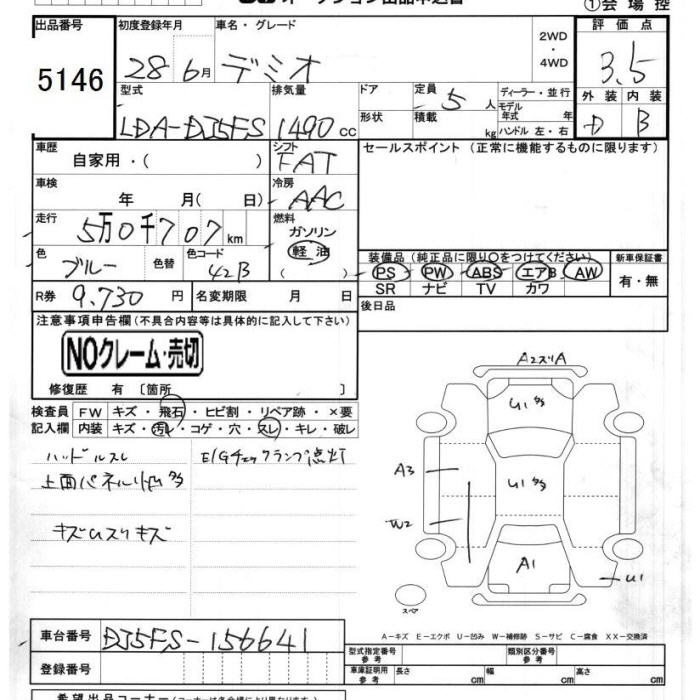 ①会場控
出品番号
5146
初度登録年月
28 6月
車名・グレード
デミオ
2WD
・
4WD
評価点
3.5
外装 内装
D B
型式
LDA-DJ5FS
排気量
1490 cc
ドア
定員
5 人
ディーラー・並行
形状
積載
kg
モデル
年式 年
ハンドル 左・右
車歴
自家用・( )
シフト
FAT
セールスポイント (正常に機能するものに限ります)
車検
年 月( 日)
冷房
AAC
走行
5万0千707 km
燃料
ガソリン
軽油
( )
色
ブルー
色替
色コード
42B
装備品 (純正品に限り○をつけてください)
PS PW ABS エアB AW
SR ナビ TV カワ
新車保証書
有・無
R券
9,730 円
名変期限 月 日
後日品
注意事項申告欄 (不具合内容等は具体的に記入して下さい)
NOクレーム・売切
修復歴 有 〔箇所 〕
検査員
記入欄
FW キズ・飛石・ヒビ割・リペア跡・×要
内装 キズ・汚レ・コゲ・穴・スレ・キレ・破レ
ハンドルスレ
E/Gチェックランプ点灯
上面パネル小凹
キズUスリキズ
A2スリA
U1
A3
U1
W2
A1
U1
スペア
A－キズ E－エクボ U－凹み W－補修跡 S－サビ C－腐食 XX－交換済
車台番号
DJ5FS-156641
登録番号
型式指定番号
参考
類別区分番号
参考
車庫証明用
参考
長さ cm 幅 cm 高さ cm